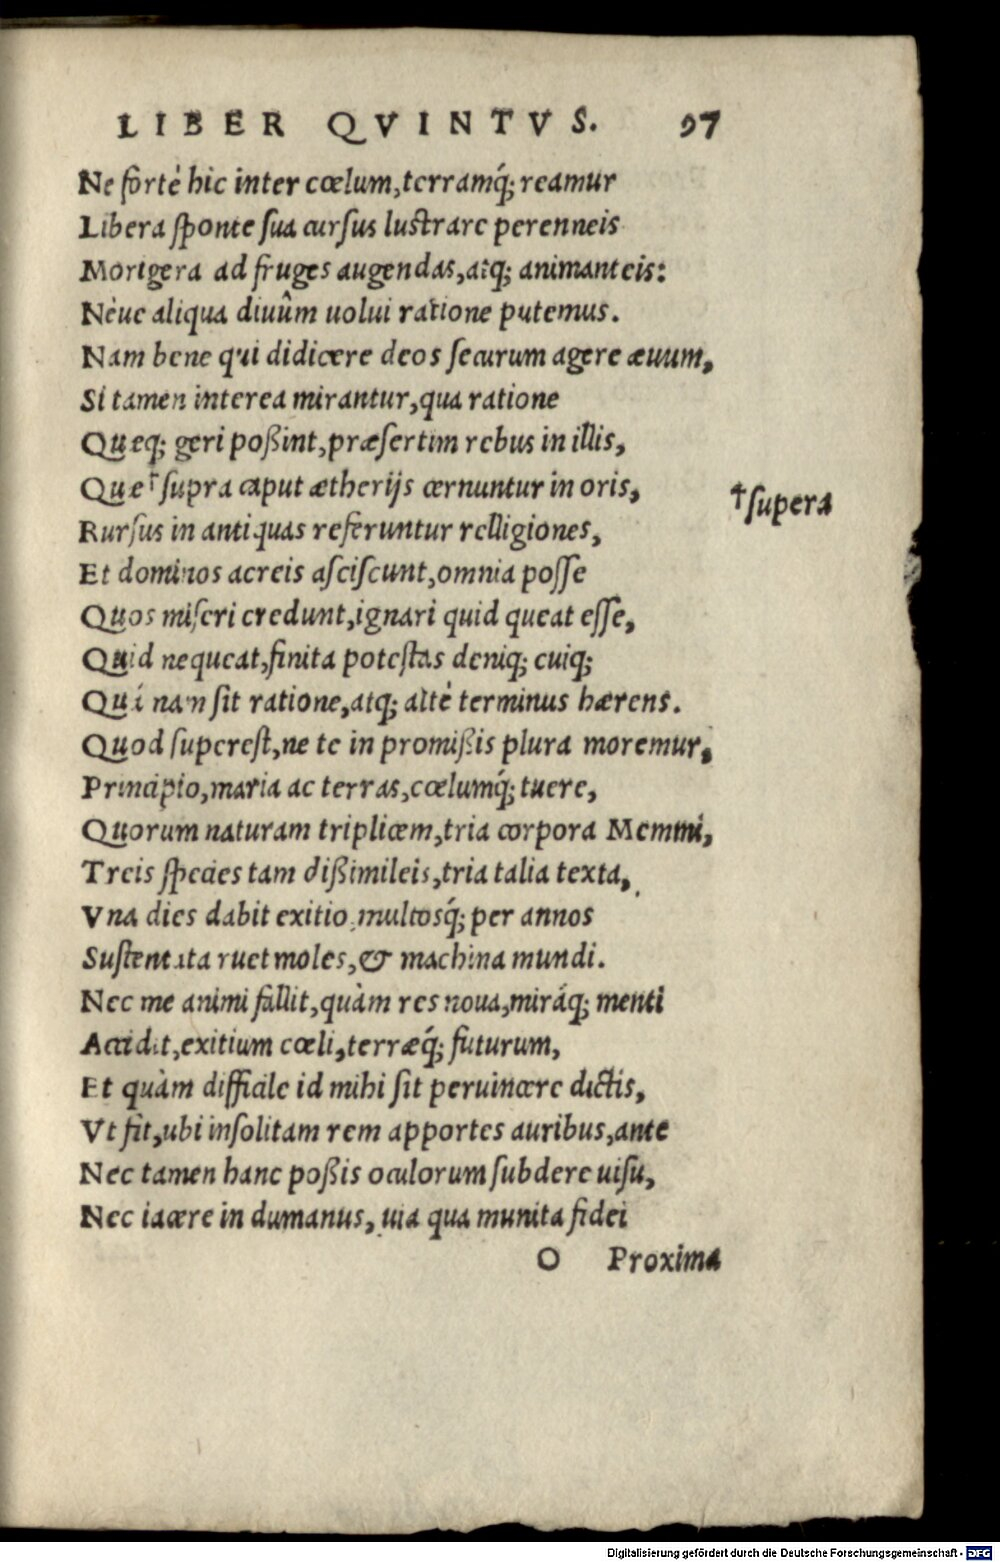 LIBER QVINTVS. 97
Ne fortè hic inter cœlum, terramq́; reamur
Libera ſponte ſua curſus luſtrare perenneis
Morigera ad fruges augendas, atq; animanteis:
Nèue aliqua diuûm uolui ratione putemus.
Nam bene qui didicere deos ſecurum agere æuum,
Si tamen interea mirantur, qua ratione
Quæq; geri poßint, præſertim rebus in illis,
Quæ †ſupra caput ætherijs cernuntur in oris,
†ſupera
Rurſus in antiquas referuntur relligiones,
Et dominos acreis aſciſcunt, omnia poſſe
Quos miſeri credunt, ignari quid queat eſſe,
Quid nequeat, finita poteſtas deniq; cuiq;
Quá nam ſit ratione, atq; altè terminus hærens.
Quod ſupereſt, ne te in promißis plura moremur,
Principio, maria ac terras, cœlumq́; tuere,
Quorum naturam triplicem, tria corpora Memmi,
Treis ſpecies tam dißimileis, tria talia texta,
Vna dies dabit exitio, multosq́; per annos
Suſtentata ruet moles, & machina mundi.
Nec me animi fallit, quàm res noua, miráq; menti
Accidit, exitium cœli, terræq́; futurum,
Et quàm difficile id mihi ſit peruincere dictis,
Vt fit, ubi inſolitam rem apportes auribus, ante
Nec tamen hanc poßis oculorum ſubdere uiſu,
Nec iacere in dumanus, uia qua munita fidei
O Proxima
Digitalisierung gefördert durch die Deutsche Forschungsgemeinschaft - DFG